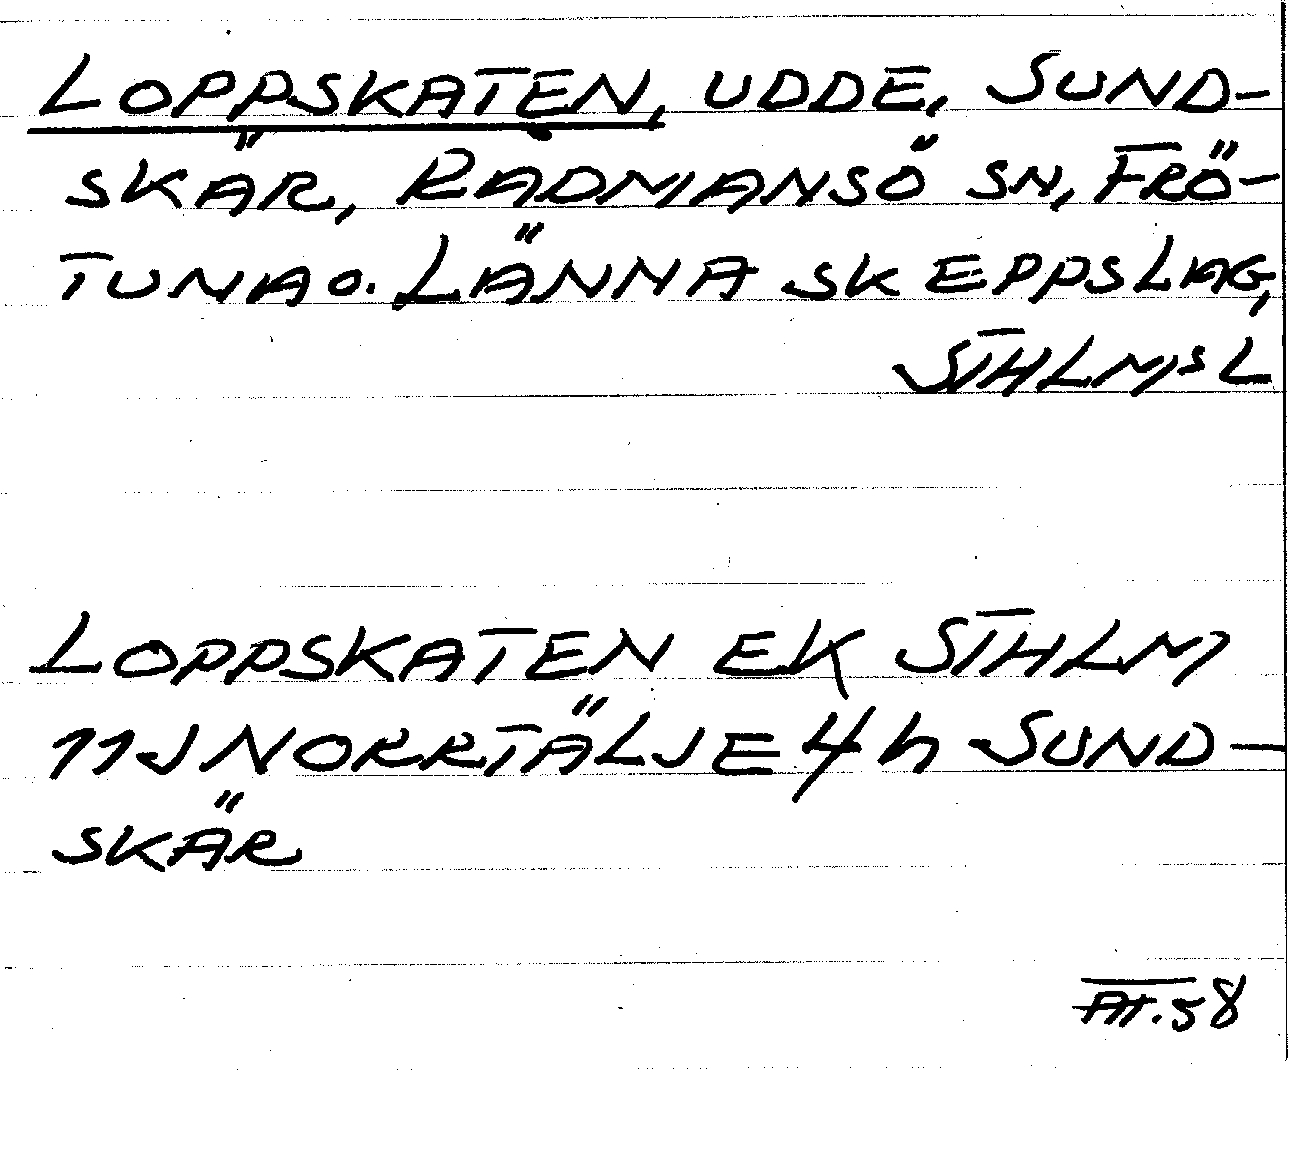 LOPPSKATEN, UDDE, SUND-
SKÄR, RÅDMANSÖ SN, FRÖ-
TUNA O. LÄNNA SKEPPSLAG,
STHLMS L
LOPPSKATEN EK STHLM
11J NORRTÄLJE 4h SUND-
SKÄR
58